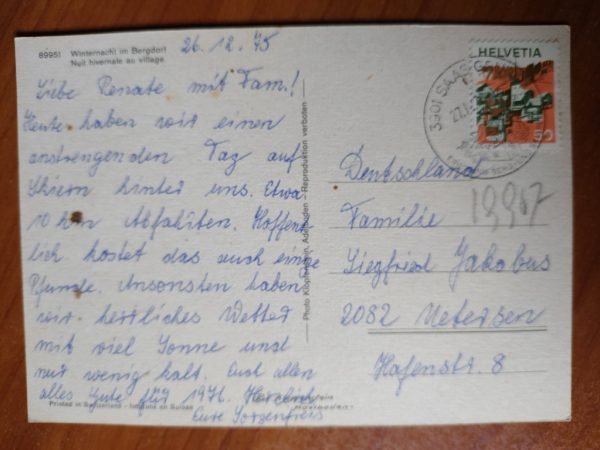 89951 Winternacht im Bergdorf
Nuit hivernale au village.
26.12.75
Liebe Renate mit Fam.!
Heute haben wir einen
anstrengenden Tag auf
Skiern hinter uns. Etwa
10 km Abfahrten. Hoffent
lich kostet das auch einige
Pfunde. Ansonsten haben
wir herrliches Wetter
mit viel Sonne und
nur wenig kalt. Euch allen
alles Gute für 1976. Herzlich
Eure
Printed in Switzerland - Imprimé en Suisse
Adelboden - Reproduktion verboten
HELVETIA
50
3901 SAAS
Deutschland
Familie
Siegfried Jakobus
2082 Uetersen
Hafenstr. 8